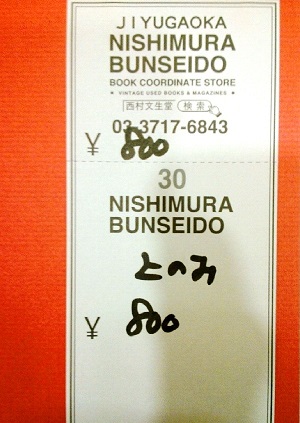 JIYUGAOKA
NISHIMURA
BUNSEIDO
BOOK COORDINATE STORE
• VINTAGE USED BOOKS & MAGAZINES •
西村文生堂 検索
03-3717-6843
¥ 800
30
NISHIMURA
BUNSEIDO
とのみ
¥ 800